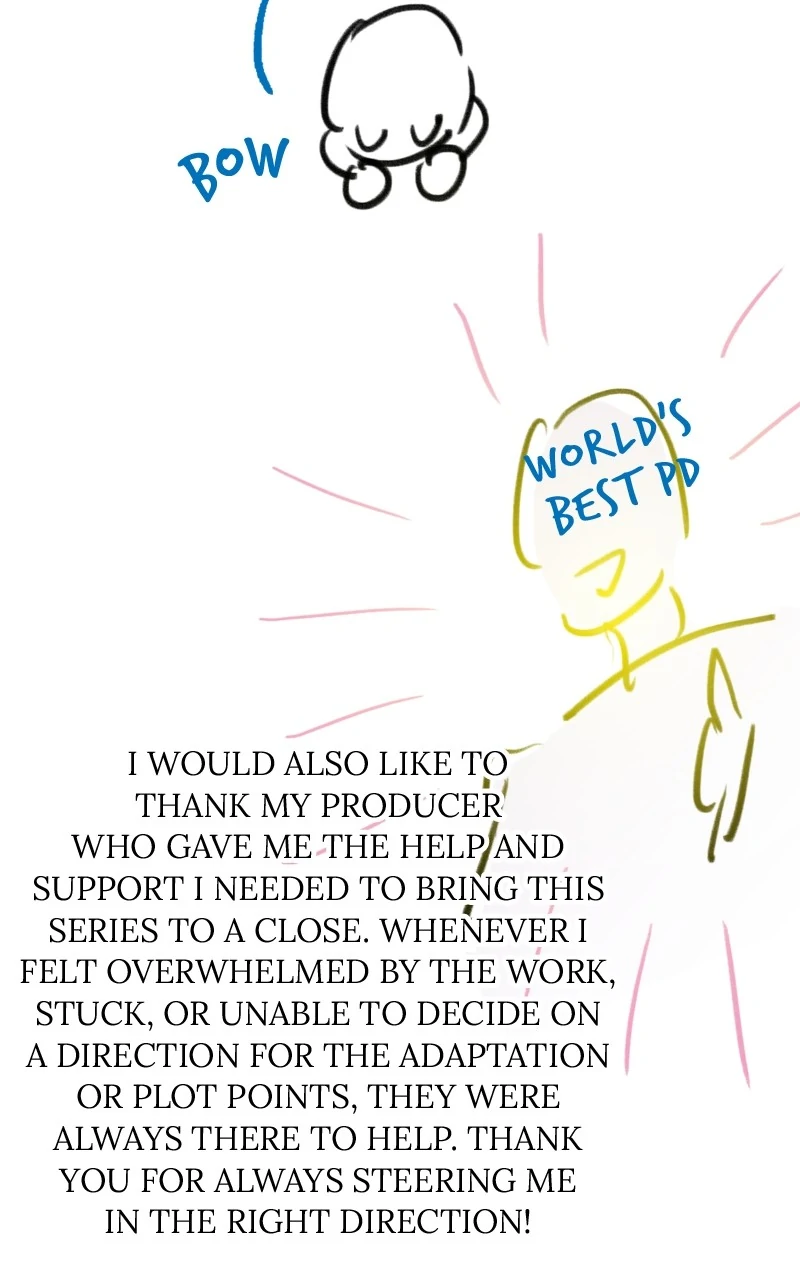 BOW
WORLD'S
BEST PD
I WOULD ALSO LIKE TO
THANK MY PRODUCER
WHO GAVE ME THE HELP AND
SUPPORT I NEEDED TO BRING THIS
SERIES TO A CLOSE. WHENEVER I
FELT OVERWHELMED BY THE WORK,
STUCK, OR UNABLE TO DECIDE ON
A DIRECTION FOR THE ADAPTATION
OR PLOT POINTS, THEY WERE
ALWAYS THERE TO HELP. THANK
YOU FOR ALWAYS STEERING ME
IN THE RIGHT DIRECTION!